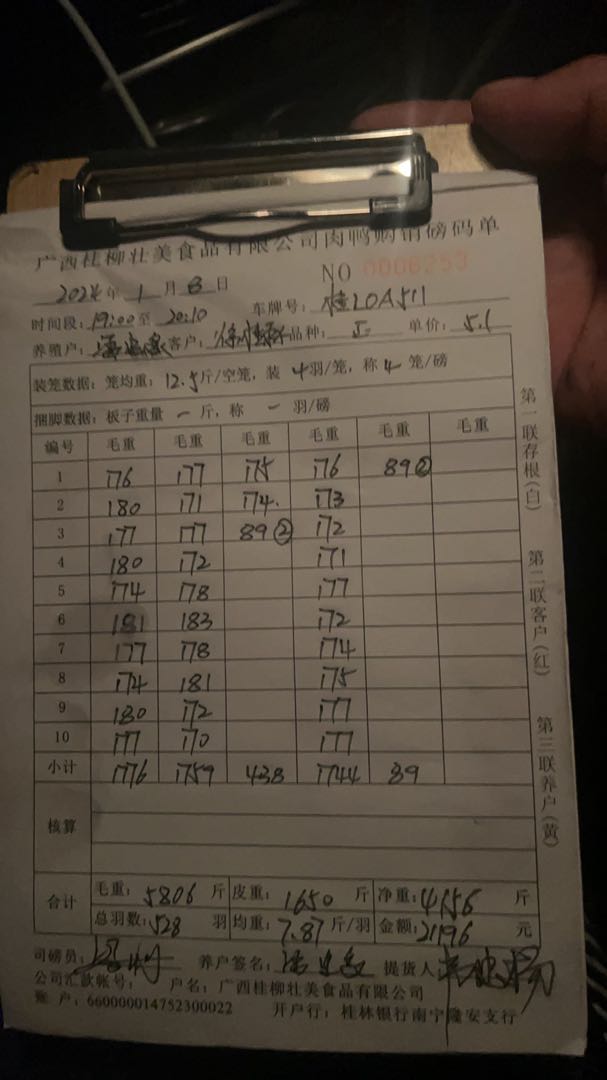 广西桂柳壮美食品有限公司肉鸭购销磅码单
NO 0006253
2024年 1 月 8 日 车牌号: 桂LOA511
时间段: 19:00至 20:10
养殖户: 客户: 品种: 正 单价: 5.1
装笼数据: 笼均重: 12.5斤/空笼, 装 4羽/笼, 称 4 笼/磅
捆脚数据: 板子重量 一 斤, 称 一 羽/磅
编号 毛重 毛重 毛重 毛重 毛重 毛重
1 176 177 175 176 89②
2 180 171 174. 173
3 177 177 89② 172
4 180 172 171
5 174 178 177
6 181 183 172
7 177 178 174
8 174 181 175
9 180 172 177
10 177 170 177
小计 1776 1759 438 1744 89
核算
合计 毛重: 5806 斤 皮重: 1650 斤 净重: 4156 斤
总羽数: 528 羽 均重: 7.87 斤/羽 金额: 21196 元
司磅员: 养户签名: 提货人
公司汇款帐号: 户名: 广西桂柳壮美食品有限公司
账 户: 660000014752300022 开户行: 桂林银行南宁隆安支行
第一联存根(白)
第二联客户(红)
第三联养户(黄)